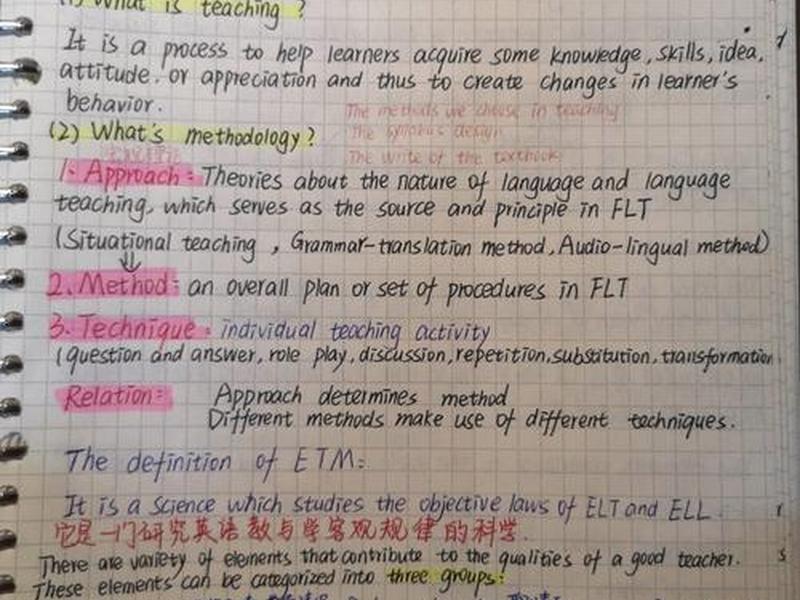 (1) What is teaching?
It is a process to help learners acquire some knowledge, skills, idea,
attitude. or appreciation and thus to create changes in learner's
behavior.
The methods we choose in teaching
(2) What's methodology?
The syllabus design
The write of the textbook
1. Approach: Theories about the nature of language and language
teaching, which serves as the source and principle in FLT
(Situational teaching, Grammar-translation method, Audio-lingual method)
2. Method: an overall plan or set of procedures in FLT
3. Technique: individual teaching activity
(question and answer, role play, discussion, repetition, substitution, transformation
Relation: Approach determines method
Different methods make use of different techniques.
The definition of ETM:
It is a science which studies the objective laws of ELT and ELL.
它是一门研究英语教与学客观规律的科学.
There are variety of elements that contribute to the qualities of a good teacher.
These elements can be categorized into three groups: